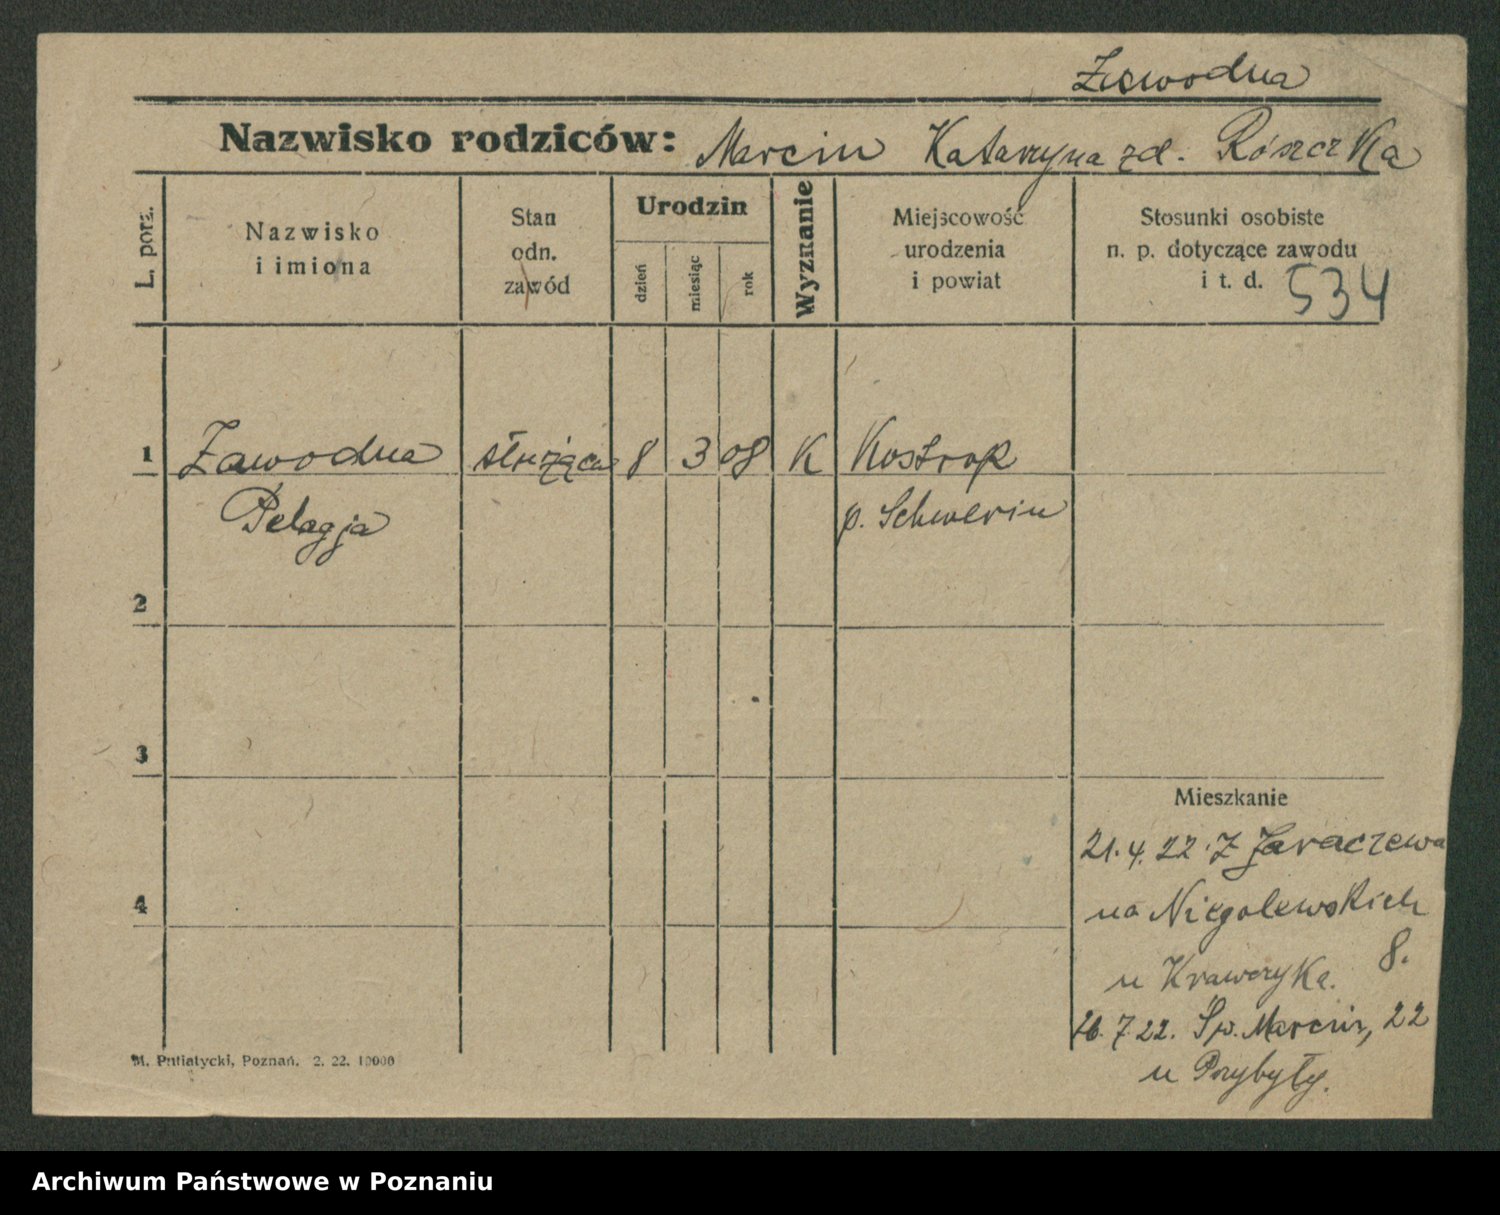 Zawodna
Nazwisko rodziców: Marcin Katarzyna zd. Rószczka
L. porz.
Nazwisko
i imiona
Stan
odn.
zawód
Urodzin
dzień
miesiąc
rok
Wyznanie
Miejscowość
urodzenia
i powiat
Stosunki osobiste
n. p. dotyczące zawodu
i t. d. 534
1 Zawodna służąca 8 3 08 K Kostrop
Pelagja p. Schwerin
2
3
Mieszkanie
21.4.22. Z Jaraczewa
4
na Niegolewskich
8.
u Krawczyka.
26.7.22. Św. Marcin, 22
u Przybyły.
M. Putiatycki, Poznań. 2. 22. 10000
Archiwum Państwowe w Poznaniu